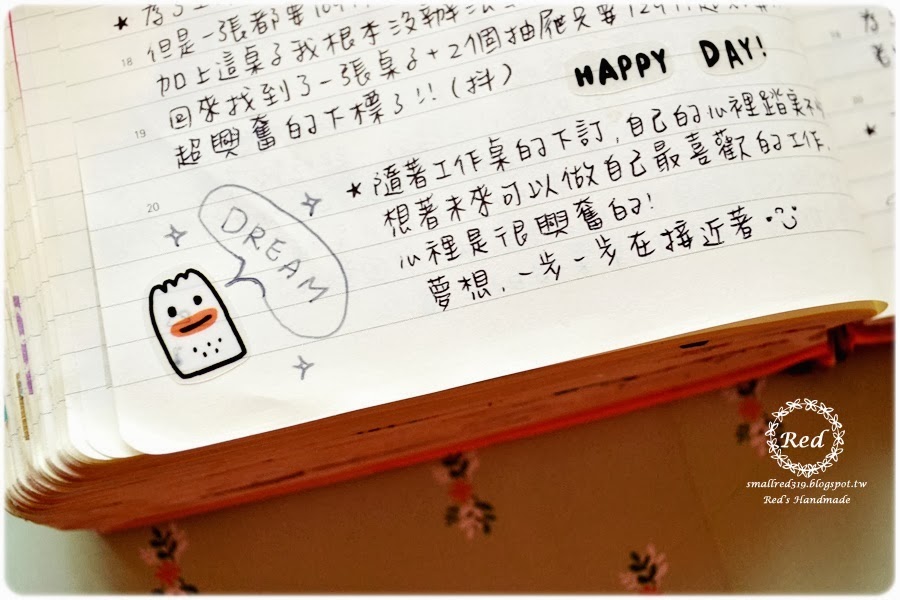 但是一張都要10
18
加上這桌子我根本沒辦法
回來找到了一張桌子+2個抽屜只要
HAPPY DAY!
19
超興奮的下標了!! (抖)
★ 隨著工作桌的下訂，自己的心裡踏實
想著未來可以做自己最喜歡的工作，
心裡是很興奮的!
夢想，一步一步在接近著
20
DREAM
Red
smallred319.blogspot.tw
Red's Handmade